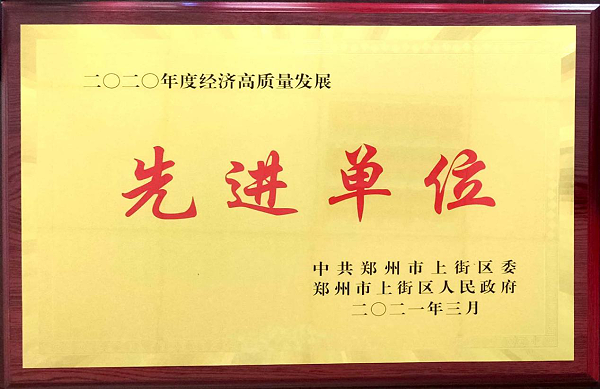 二〇二〇年度经济高质量发展
先进单位
中共郑州市上街区委
郑州市上街区人民政府
二〇二一年三月